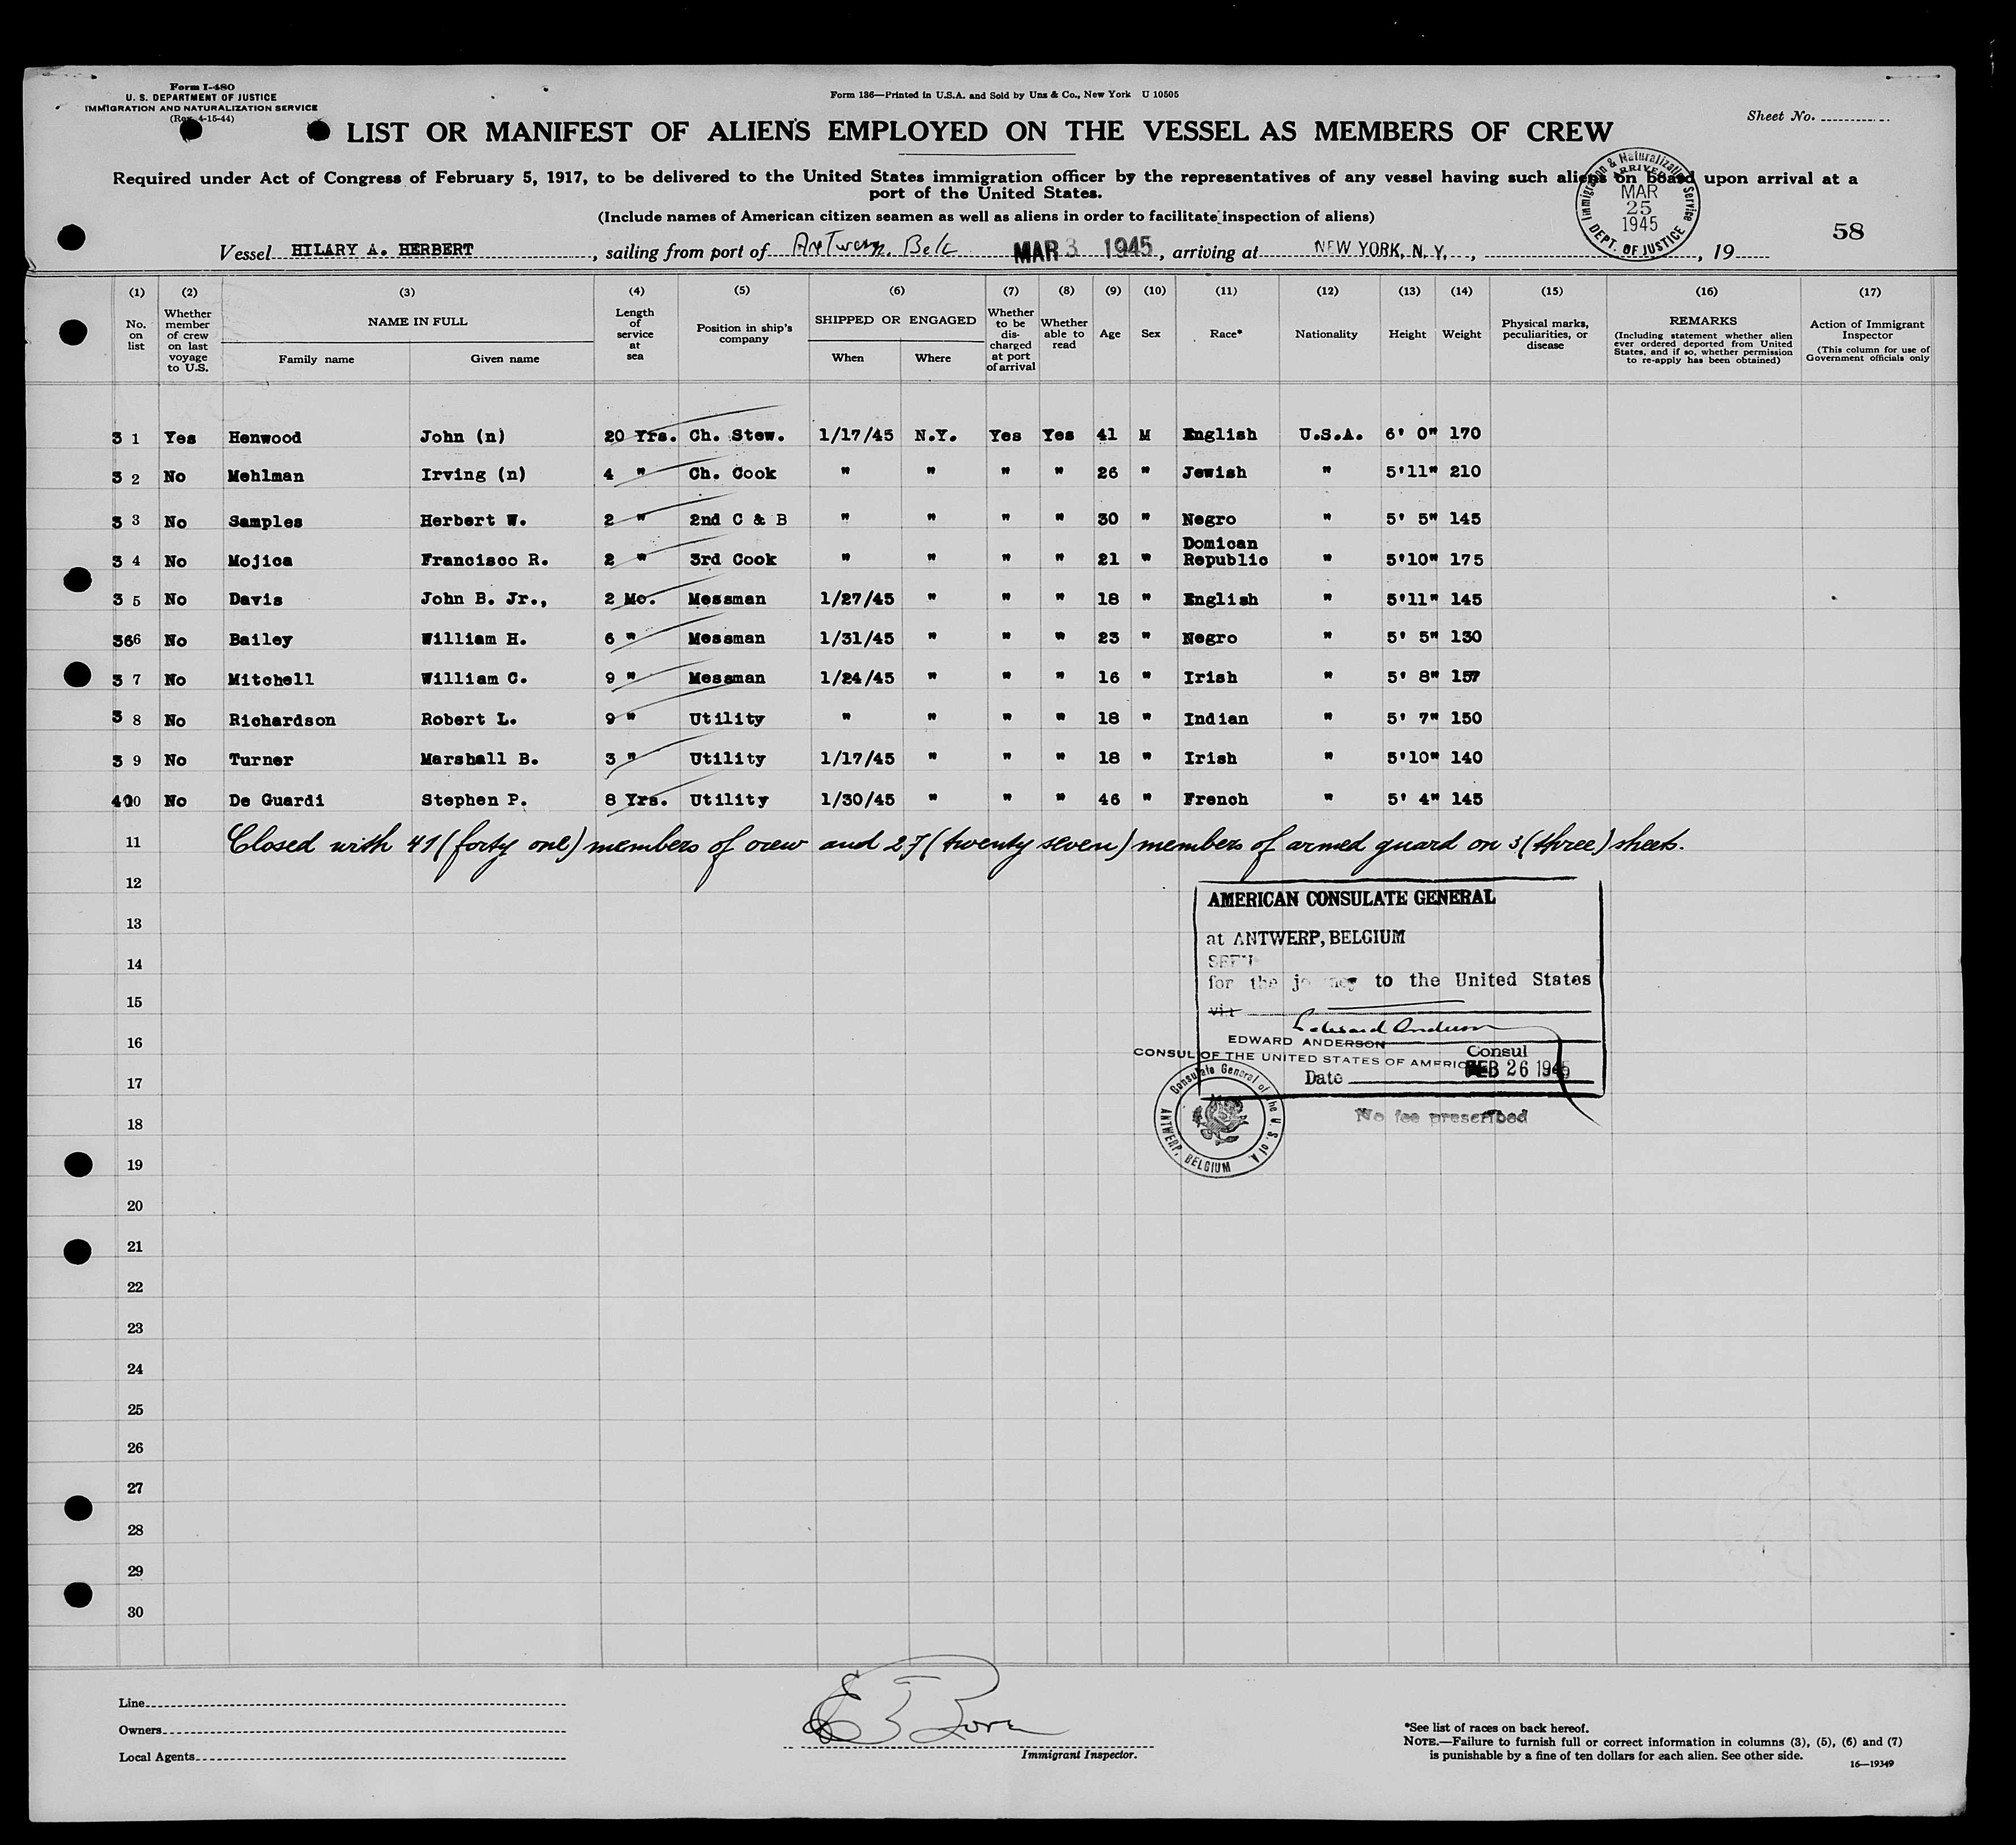 Form I-480
U. S. DEPARTMENT OF JUSTICE
IMMIGRATION AND NATURALIZATION SERVICE
(Rev. 4-15-44)
Form 136—Printed in U.S.A. and Sold by Unz & Co., New York U 10505
Sheet No.
LIST OR MANIFEST OF ALIENS EMPLOYED ON THE VESSEL AS MEMBERS OF CREW
Required under Act of Congress of February 5, 1917, to be delivered to the United States immigration officer by the representatives of any vessel having such aliens on board upon arrival at a
port of the United States.
(Include names of American citizen seamen as well as aliens in order to facilitate inspection of aliens)
Immigration & Naturalization Service
ARRIVED
MAR
25
1945
DEPT. OF JUSTICE
58
Vessel HILARY A. HERBERT, sailing from port of Antwerp, Belg MAR 3 1945, arriving at NEW YORK, N. Y., , 19
(1) (2) (3) (4) (5) (6) (7) (8) (9) (10) (11) (12) (13) (14) (15) (16) (17)
No. on list
Whether member of crew on last voyage to U.S.
NAME IN FULL
Family name Given name
Length of service at sea
Position in ship's company
SHIPPED OR ENGAGED
When Where
Whether to be discharged at port of arrival
Whether able to read
Age
Sex
Race*
Nationality
Height
Weight
Physical marks, peculiarities, or disease
REMARKS
(Including statement whether alien ever ordered deported from United States, and if so, whether permission to re-apply has been obtained)
Action of Immigrant Inspector
(This column for use of Government officials only
3 1 Yes Henwood John (n) 20 Yrs. Ch. Stew. 1/17/45 N.Y. Yes Yes 41 M English U.S.A. 6' 0" 170
3 2 No Mehlman Irving (n) 4 " Ch. Cook " " " " 26 " Jewish " 5'11" 210
3 3 No Samples Herbert W. 2 " 2nd C & B " " " " 30 " Negro " 5' 5" 145
3 4 No Mojica Francisco R. 2 " 3rd Cook " " " " 21 " Domican Republic " 5'10" 175
3 5 No Davis John B. Jr., 2 Mo. Messman 1/27/45 " " " 18 " English " 5'11" 145
366 No Bailey William H. 6 " Messman 1/31/45 " " " 23 " Negro " 5' 5" 130
3 7 No Mitchell William C. 9 " Messman 1/24/45 " " " 16 " Irish " 5' 8" 157
3 8 No Richardson Robert L. 9 " Utility " " " " 18 " Indian " 5' 7" 150
3 9 No Turner Marshall B. 3 " Utility 1/17/45 " " " 18 " Irish " 5'10" 140
400 No De Guardi Stephen P. 8 Yrs. Utility 1/30/45 " " " 46 " French " 5' 4" 145
11 Closed with 41 (forty one) members of crew and 27 (twenty seven) members of armed guard on 3 (three) sheets.
12
13
14
15
16
17
18
19
20
21
22
23
24
25
26
27
28
29
30
AMERICAN CONSULATE GENERAL
at ANTWERP, BELGIUM
SEEN
for the journey to the United States
via
Edward Anderson
EDWARD ANDERSON
Consul
CONSUL OF THE UNITED STATES OF AMERICA
Date FEB 26 1945
No fee prescribed
Consulate General of the U. S. of A.
ANTWERP, BELGIUM
Line
Owners
Local Agents
Immigrant Inspector.
*See list of races on back hereof.
NOTE.—Failure to furnish full or correct information in columns (3), (5), (6) and (7)
is punishable by a fine of ten dollars for each alien. See other side.
16—19349